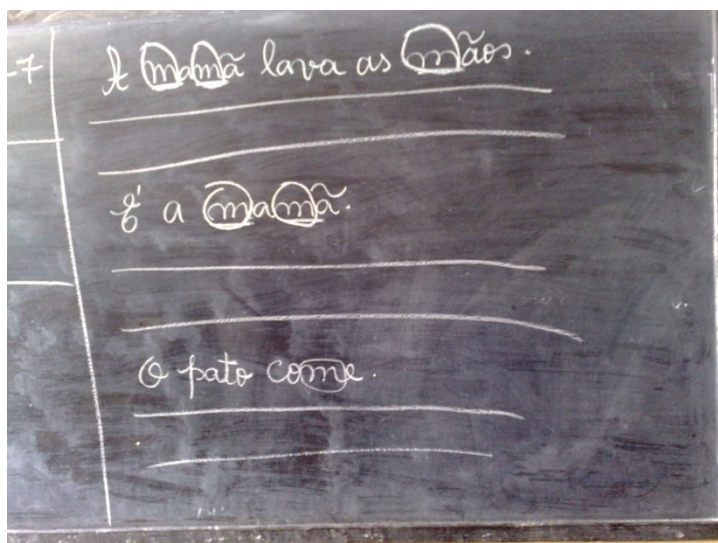 -7
A mamã lava as mãos.
É a mamã.
O pato come.